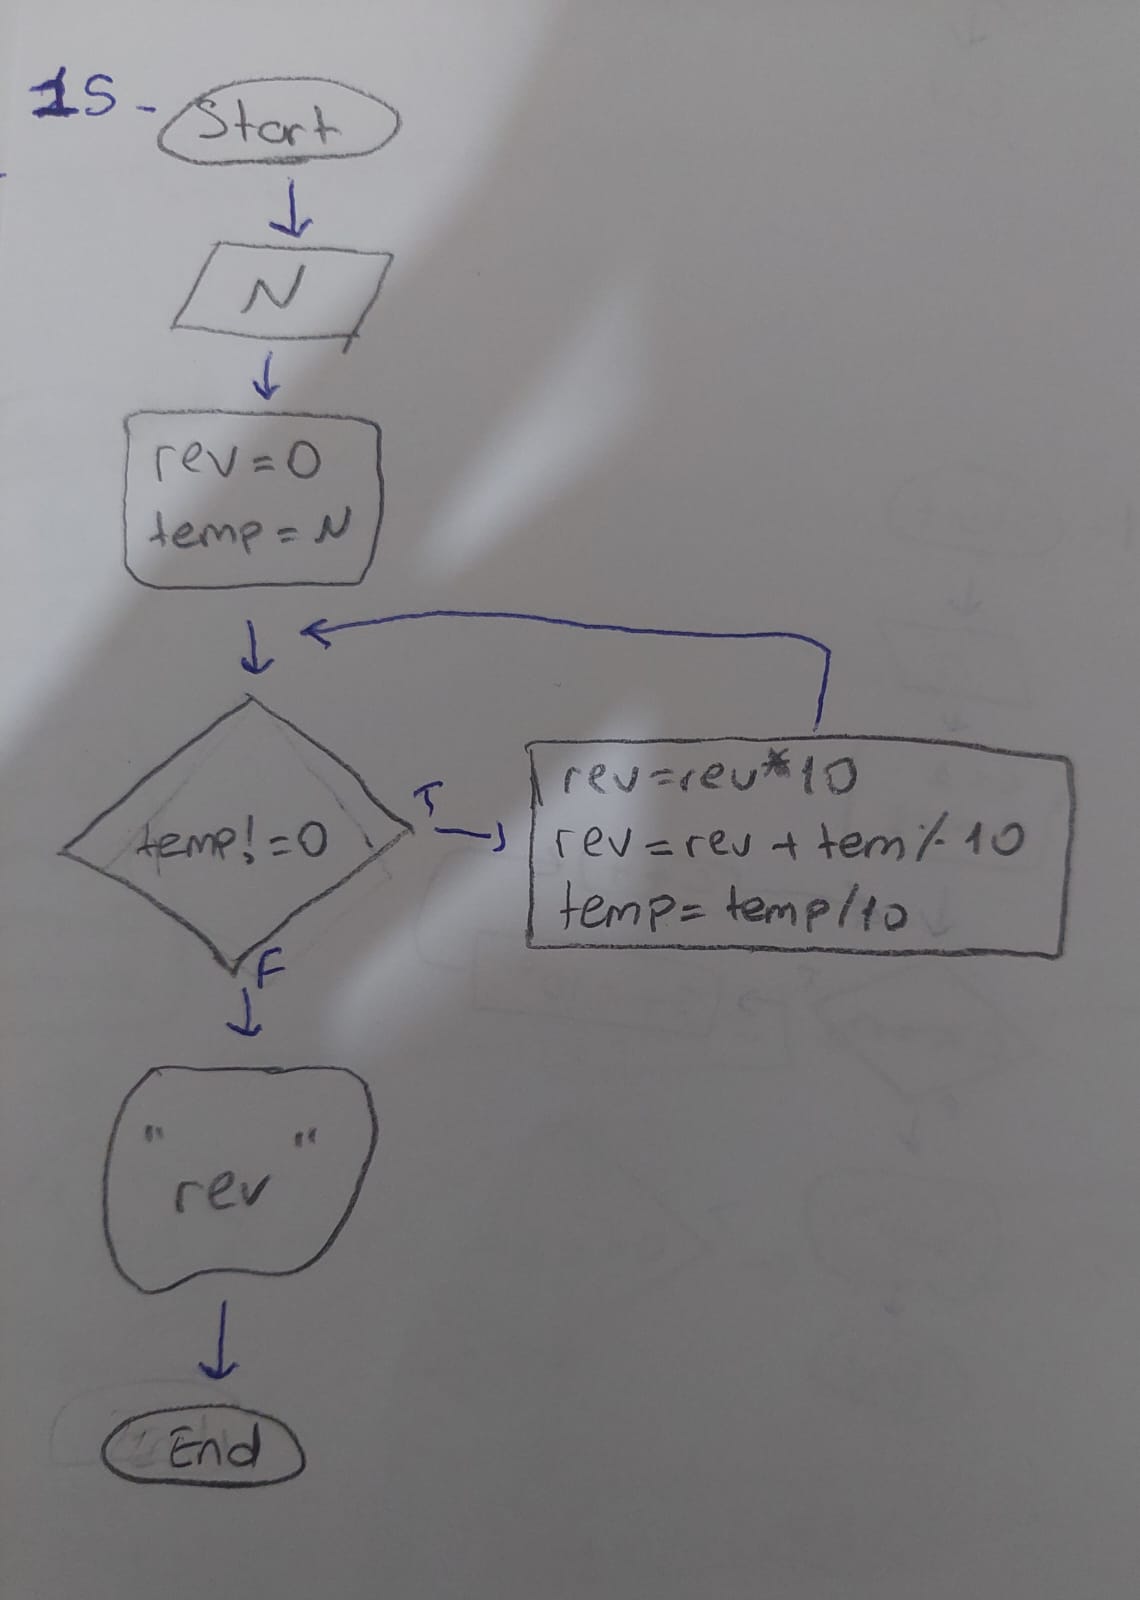 15-
Start
N
rev=0
temp=N
temp!=0
T
rev=rev*10
rev=rev+tem%10
temp=temp/10
F
" "
rev
End